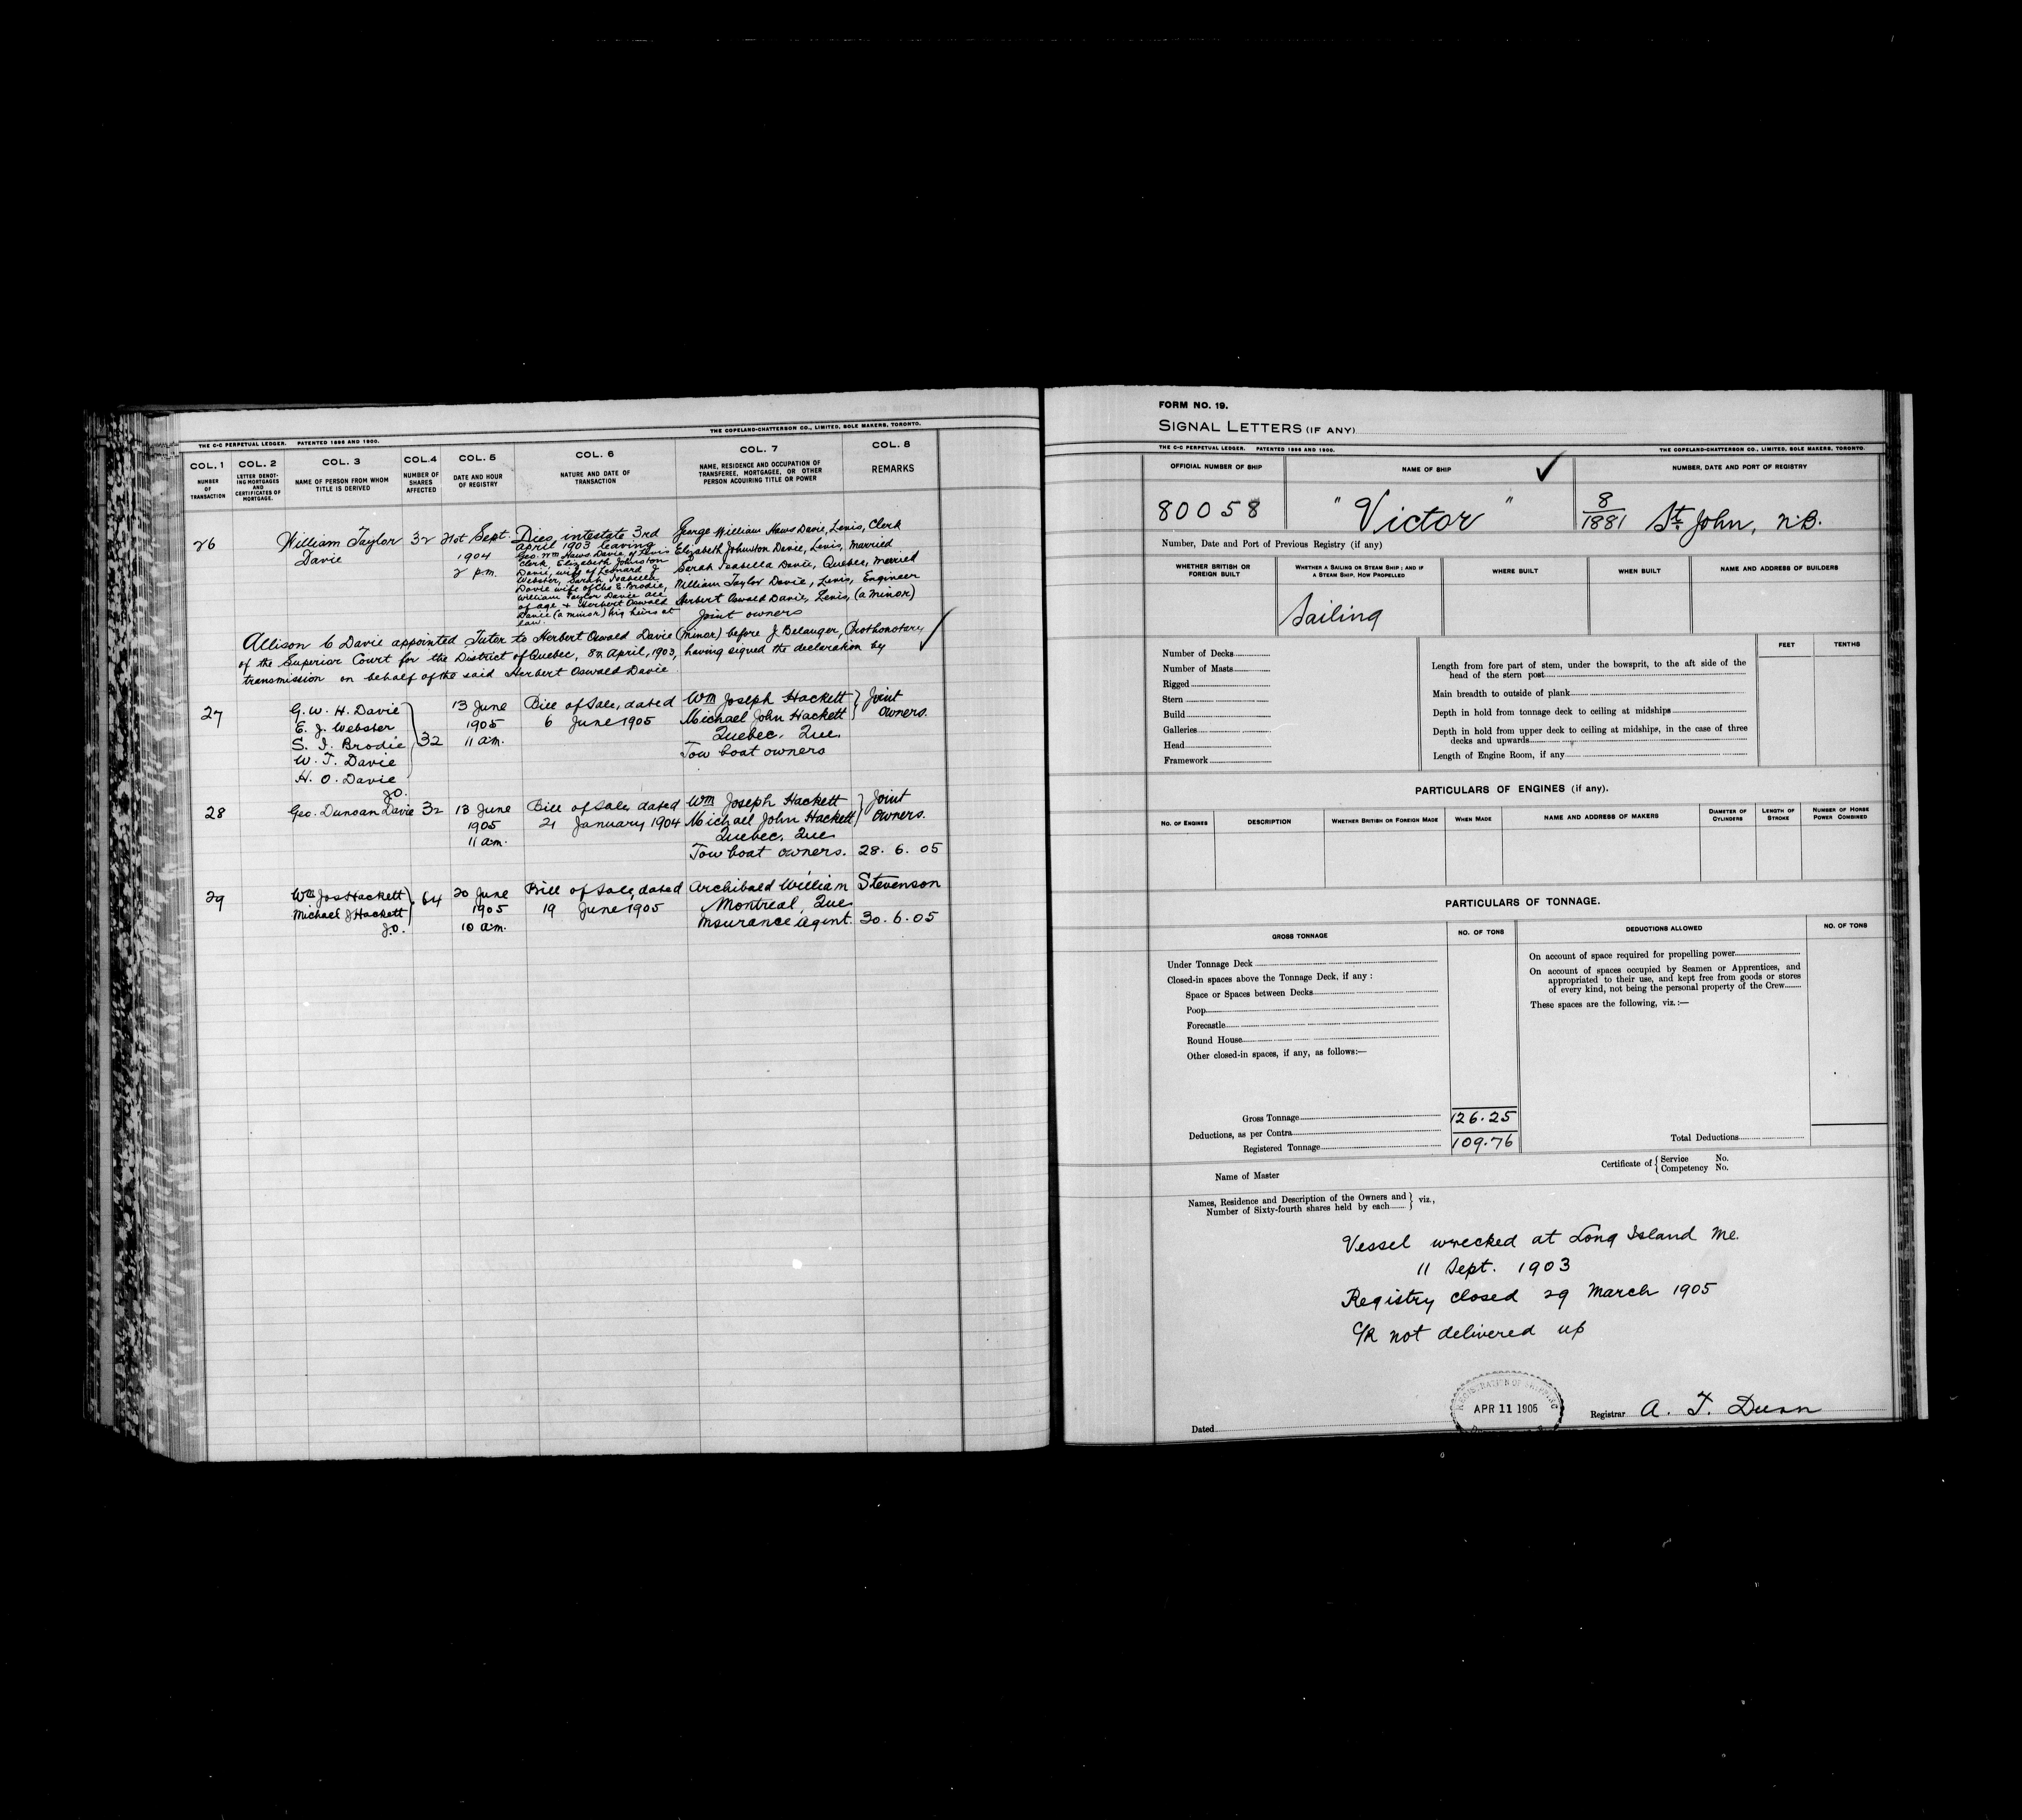 THE C-C PERPETUAL LEDGER. PATENTED 1896 AND 1900. THE COPELAND-CHATTERSON CO., LIMITED, SOLE MAKERS, TORONTO.
COL. 1 COL. 2 COL. 3 COL. 4 COL. 5 COL. 6 COL. 7 COL. 8
NUMBER OF TRANSACTION
LETTER DENOTING MORTGAGES AND CERTIFICATES OF MORTGAGE.
NAME OF PERSON FROM WHOM TITLE IS DERIVED
NUMBER OF SHARES AFFECTED
DATE AND HOUR OF REGISTRY
NATURE AND DATE OF TRANSACTION
NAME, RESIDENCE AND OCCUPATION OF TRANSFEREE, MORTGAGEE, OR OTHER PERSON ACQUIRING TITLE OR POWER
REMARKS
26 William Taylor Davie 32 21st Sept. 1904 2 p.m.
Dies intestate 3rd
April 1903 leaving
Geo. Wm Haws Davie of Levis
Clerk, Elizabeth Johnston
Davie, wife of Leonard J
Webster, Sarah Isabella
Davie wife of Chs E. Brodie,
William Taylor Davie all
of age & Herbert Oswald
Davie (a minor) his heirs at
law.
George William Haws Davie, Levis, Clerk
Elizabeth Johnston Davie, Levis, Married
Sarah Isabella Davie, Quebec, Married
William Taylor Davie, Levis, Engineer
Herbert Oswald Davie, Levis, (a minor)
Joint owners
Allison C Davie appointed Tutor to Herbert Oswald Davie (minor) before J. Belauger, Prothonotary
of the Superior Court for the District of Quebec, 8th April, 1903, having signed the declaration by
transmission on behalf of the said Herbert Oswald Davie
27 G. W. H. Davie
E. J. Webster
S. I. Brodie
W. T. Davie
H. O. Davie
J.O.
32
13 June
1905
11 am.
Bill of Sale, dated
6 June 1905
Wm Joseph Hackett
Michael John Hackett
Quebec, Que
Tow boat owners
Joint
owners.
28 Geo. Duncan Davie 32 13 June
1905
11 am.
Bill of Sale, dated
21 January 1904
Wm Joseph Hackett
Michael John Hackett
Quebec, Que
Tow boat owners. 28. 6. 05
Joint
owners.
29 Wm Jos Hackett
Michael J Hackett
J.O.
64
20 June
1905
10 am.
Bill of Sale, dated
19 June 1905
Archibald William Stevenson
Montreal, Que
Insurance agent. 30. 6. 05
FORM NO. 19.
SIGNAL LETTERS (IF ANY)
THE C-C PERPETUAL LEDGER. PATENTED 1896 AND 1900. THE COPELAND-CHATTERSON CO., LIMITED, SOLE MAKERS, TORONTO.
OFFICIAL NUMBER OF SHIP NAME OF SHIP NUMBER, DATE AND PORT OF REGISTRY
80058 "Victor" 8/1881 St. John, N.B.
Number, Date and Port of Previous Registry (if any)
WHETHER BRITISH OR FOREIGN BUILT
WHETHER A SAILING OR STEAM SHIP; AND IF A STEAM SHIP, HOW PROPELLED
WHERE BUILT
WHEN BUILT
NAME AND ADDRESS OF BUILDERS
Sailing
Number of Decks
Number of Masts
Rigged
Stern
Build
Galleries
Head
Framework
FEET TENTHS
Length from fore part of stem, under the bowsprit, to the aft side of the
head of the stern post
Main breadth to outside of plank
Depth in hold from tonnage deck to ceiling at midships
Depth in hold from upper deck to ceiling at midships, in the case of three
decks and upwards
Length of Engine Room, if any
PARTICULARS OF ENGINES (if any).
NO. OF ENGINES DESCRIPTION WHETHER BRITISH OR FOREIGN MADE WHEN MADE NAME AND ADDRESS OF MAKERS DIAMETER OF CYLINDERS LENGTH OF STROKE NUMBER OF HORSE POWER COMBINED
PARTICULARS OF TONNAGE.
GROSS TONNAGE NO. OF TONS DEDUCTIONS ALLOWED NO. OF TONS
Under Tonnage Deck
Closed-in spaces above the Tonnage Deck, if any :
Space or Spaces between Decks
Poop
Forecastle
Round House
Other closed-in spaces, if any, as follows:—
On account of space required for propelling power
On account of spaces occupied by Seamen or Apprentices, and
appropriated to their use, and kept free from goods or stores
of every kind, not being the personal property of the Crew
These spaces are the following, viz.:—
Gross Tonnage 126.25
Deductions, as per Contra
Registered Tonnage 109.76
Total Deductions
Name of Master
Certificate of { Service No.
Competency No.
Names, Residence and Description of the Owners and } viz.,
Number of Sixty-fourth shares held by each
Vessel wrecked at Long Island Me.
11 Sept. 1903
Registry closed 29 March 1905
C/R not delivered up
REGISTRATION OF SHIPPING
APR 11 1905
Dated
Registrar A. F. Dunn